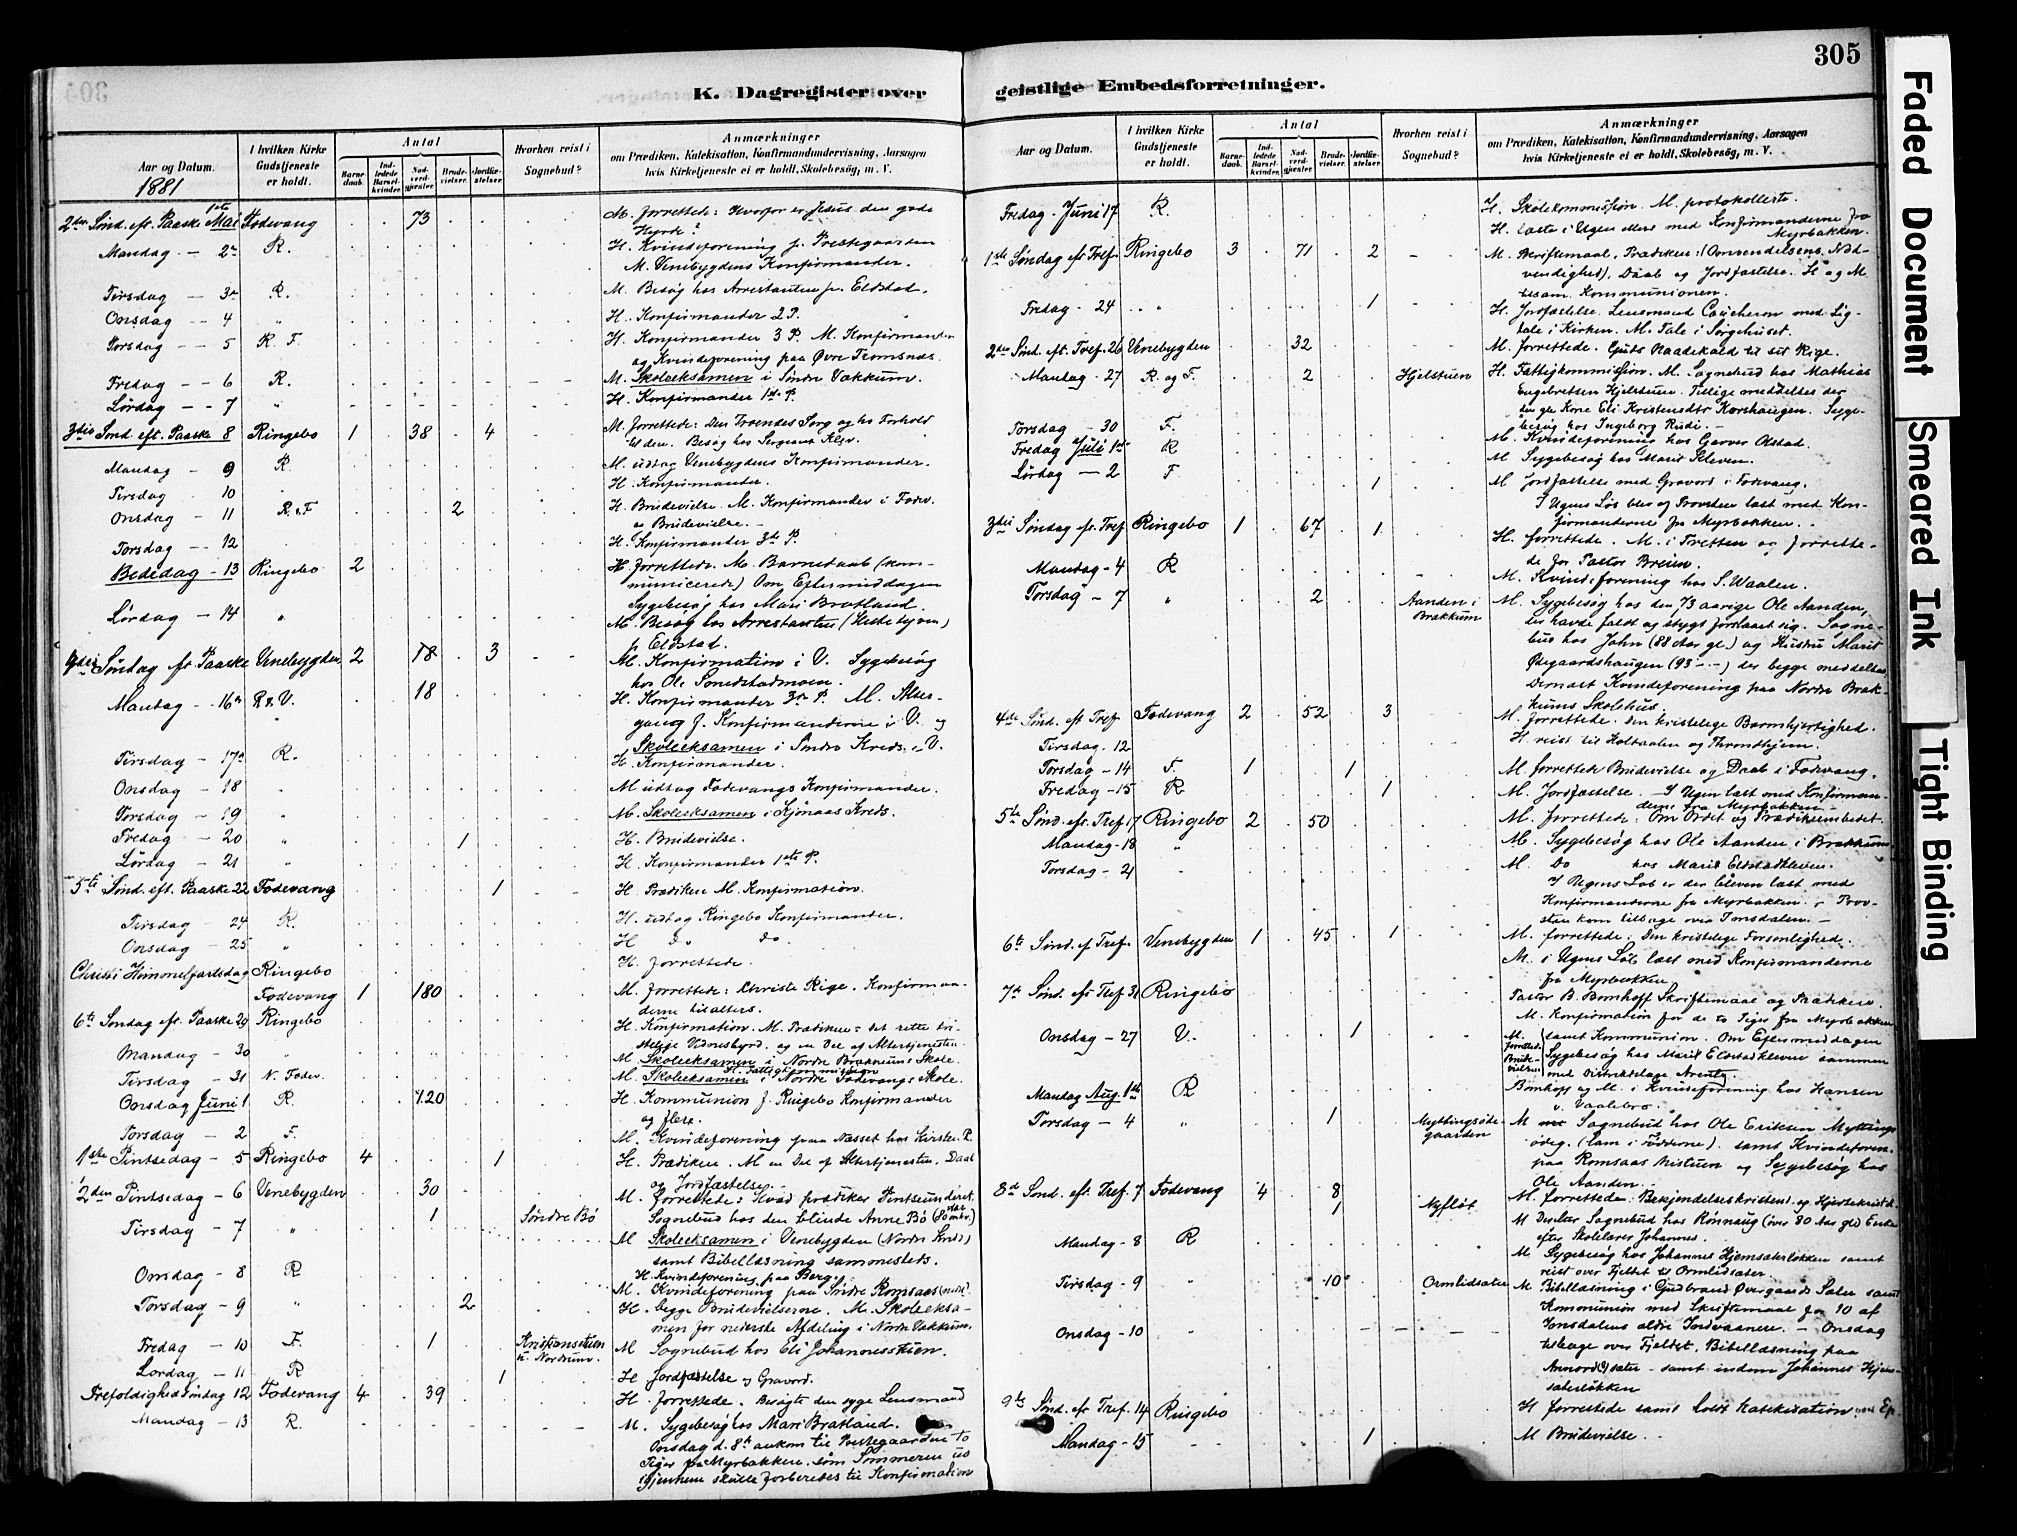 305
K. Dagregister over
geistlige Embedsforretninger.
Aar og Datum.
1881
I hvilken Kirke Gudstjeneste er holdt.
Antal
Barnedaab.
Indledede Barselkvinder.
Nadverdgjester.
Brudevielser.
Jordfæstelser.
Hvorhen reist i Sognebud?
Anmærkninger
om Prædiken, Katekisation, Konfirmandundervisning, Aarsagen
hvis Kirketjeneste ei er holdt, Skolebesøg, m. V.
2den Sønd. eft. Paaske 1ste Mai Fodevang 73 M. forrettede: Hvorfor er Jesus den gode
Hyrde?
Mandag - 2 R. H. Kvindeforening p. Prestegaarden
M. Venebygdens Konfirmander.
Tirsdag - 3 R. M. Besøg hos Arrestanten p. Eldstad.
Onsdag - 4 " H. Konfirmander 2 P.
Torsdag - 5 R F. H. Konfirmander 3 P. M. Konfirmander
og Kvindeforening paa Øvre Tromsnæs.
Fredag - 6 R. M. Skoleeksamen i Søndre Vækkum.
Lørdag - 7 " H. Konfirmander 1ste P.
3die Sønd. eft. Paaske 8 Ringebo 1 38 4 M. forrettede: Den Troendes Sorg og hs Forhold
til den. Besøg hos Sergeant
Mandag - 9 R. M. udtog Venebygdens Konfirmander.
Tirsdag - 10 " H. Konfirmander.
Onsdag - 11 R. F 2 H. Brudevielse. M. Konfirmander i Fodev.
og Brudevielse.
Torsdag - 12 H. Konfirmander 3die P.
Bededag - 13 Ringebo 2 H. forrettede. M. Barnedaab (kom-
municerede) Om Eftermiddagen
Sygebesøg hos Mari Bratland.
Lørdag - 14 " M. Besøg hos Arrestanten (Hestetyven)
p. Eldstad.
4de Søndag eft. Paaske Venebygden 2 78 3 M. Konfirmation i V. Sygebesøg
hos Ole Smedstadmoen.
Mandag - 16 R. V. 18 H. Konfirmander 3die P. M. Alter-
gang f. Konfirmanderne i V. og
Skoleeksamen i Søndre Kreds i V.
Tirsdag - 17 R. H. Konfirmander.
Onsdag - 18 " M udtog Fodevangs Konfirmander.
Torsdag - 19 " M. Skoleeksamen i Kjønaas Kreds.
Fredag - 20 " 1 H. Brudevielse.
Lørdag - 21 " H Konfirmander 1ste P.
5te Sønd. eft. Paaske 22 Fodevang 1 H. Prædiken M. Konfirmation.
Tirsdag - 24 R. H. udtog Ringebo Konfirmander.
Onsdag - 25 " H Do Do.
Christi Himmelfartsdag Ringebo H. forrettede.
Fodevang 1 180 M. forrettede: Christi Rige. Konfirman-
derne tilalters.
6te Søndag eft. Paaske 29 Ringebo H. Konfirmation. M. Prædiken: det rette kri-
stelige Vidnesbyrd, og en Del af Altertjenesten
Mandag - 30 " M Skoleeksamen i Nordre Brækkums Skole.
H. Fattigkommission
Tirsdag - 31 N. Fodev. M. Skoleeksamen i Nordre Fodevangs Skole.
Onsdag Juni 1 R. 120 H. Kommunion f. Ringebo Konfirmander
og flere.
Torsdag - 2 F. M. Kvindeforening paa Næsset hos Kirstn. P.
1ste Pintsedag - 5 Ringebo 4 1 H. Prædiken. M en Del af Altertjenesten, Daab
og Jordfæstelse.
2den Pintsedag - 6 Venebygden 30 M. forrettede: Hvad prædiker Pintseunderet.
1 Søndre Bø Sognebud hos den blinde Anne Bø
Tirsdag - 7 " M Skoleeksamen i Venebygden (Nordre Kreds)
samt Bibellæsning sammesteds.
Onsdag - 8 R H. Kvindeforening paa Berg.
M. Kvindeforening paa Søndre Romsaas
Torsdag - 9 " 2 H. begge Brudevielserne. M. Skoleeksa-
men for nederste Afdeling i Nordre Vækkum.
Fredag - 10 F. 1 Kristianstuen
u. Nordrum. M Sognebud hos Eli Johannesstuen.
Lørdag - 11 R 1 H Jordfæstelse og Gravord.
Trefoldigheds Søndag 12 Fodevang 4 39 H. forrettede. Besøgte den syge Lensmand
Mandag - 13 R. M. Sygebesøg hos Mari Bratland.
Onsdag d. 8de ankom til Prestegaarden to
Piger fra Myrbakken, som Sommeren ud
igjennem skulle forberedes til Konfirmation
Aar og Datum.
I hvilken Kirke Gudstjeneste er holdt.
Antal
Barnedaab.
Indledede Barselkvinder.
Nadverdgjester.
Brudevielser.
Jordfæstelser.
Hvorhen reist i Sognebud?
Anmærkninger
om Prædiken, Katekisation, Konfirmandundervisning, Aarsagen
hvis Kirketjeneste ei er holdt, Skolebesøg, m. V.
Fredag Juni 17 R. H. Skolekommission. M. protokollerte.
H. læste i Ugen med Konfirmanderne fra
Myrbakken.
1ste Søndag eft Tref. Ringebo 3 71 2 M. Skriftemaal, Prædiken: (Omvendelsens Nød-
vendighed), Daab og Jordfæstelse. H og M
tilsam. Kommunionen.
Fredag - 24 " 1 H. Jordfæstelse. Lensmand med Lig-
tale i Kirken. M. Tale i Sørgehuset.
2den Sønd. eft. Tref. 26 Venebygden 32 M. forrettede. Guds Naadekald til sit Rige.
Mandag - 27 R. og F. 2 Hjelstuen H. Fattigkommission. M. Sognebud hos Mathias
Engebretsen Hjelstuen. Tillige meddeltes der
den gl. Kone Eli Kristensdtr Korshaugen. Syge-
besøg hos Ingeborg Rudi.
Torsdag - 30 F. M. Kvindeforening hos Garver Olstad.
Fredag Juli 1ste R M Sygebesøg hos Marit Kleven.
Lørdag - 2 F 1 M Jordfæstelse med Gravord i Fodevang.
I Ugens Løb blev og Provsten læst med Kon-
firmanderne fra Myrbakken.
3die Søndag eft. Tref Ringebo 1 67 1 H. forrettede. M. i Tretten og forrette-
de for Pastor Breien.
Mandag - 4 R M. Kvindeforening hos S. Waalen.
Torsdag - 7 " 2 Aanden i
Brækkum M. Sygebesøg hos den 73 aarige Ole Aanden,
der havde faldt og stygt forslaaet sig. Sogne-
bud hos John (88 Aar gl.) og Hustru Marit
Ødegaardshaugen (93 - -) der begge meddeltes
Dernæst Kvindeforening paa Nordre Bræk-
kums Skolehus.
4de Sønd. eft Tref Fodevang 2 52 3 M. forrettede. den kristelige Barmhjertighed.
Tirsdag - 12 H. reist til Holtaalen og Throndhjem.
Torsdag - 14 F. 1 1 M. forrettede Brudevielse og Daab i Fodevang.
Fredag - 15 R 1 M. Jordfæstelse. I Ugen læst med Konfirman-
dene fra Myrbakken.
5te Sønd. eft. Tref 17 Ringebo 2 50 M. forrettede: Om Ordet og Prædikeembedet.
Mandag - 18 " M. Sygebesøg hos Ole Aanden i Brækkum
Torsdag - 21 " M. Do hos Marit Eldstadkleven.
I Ugens Løb er der bleven læst med
Konfirmanderne fra Myrbakken. Prov-
sten kom tilbage over Jonsdalen.
6te Sønd. ef Tref. Venebygden 1 45 1 M. forrettede: Den kristelige Forsonlighed.
M. i Ugens Løb læst med Konfirmanderne
fra Myrbakken
7de Sønd. eft Tref 31 Ringebo Pastor B. Bomhoff Skriftemaal og Prædiken.
M. Konfirmation for de to Piger fra Myrbakken
Onsdag - 27 V. 1 M. forrettede Brudevielsen samt Kommunion. Om Eftermiddagen
Sygebesøg hos Marit Eldstadkleven sammen
med Distriktslæge Arentz.
Mandag Aug. 1ste R Bomhoff og M. i Kvindeforening hos Hansen
v. Vaalebro.
Torsdag - 4 " 1 Myttingsøde-
gaarden M Sognebud hos Ole Eriksen Myttings
ødeg. (Lam i Fødderne). samt Kvindeforen.
paa Romsaas Nistuen og Sygebesøg hos
Ole Aanden.
8de Sønd. eft. Tref. 7 Fodevang 4 8 M. forrettede. Bekjendelseskristend. og Hjertekristd.
1 Nyfløt M Derefter Sognebud hos Rønnaug (over 80 Aar gl) Enke
efter Skolelærer Johannes.
Mandag - 8 R M Sygebesøg hos Johannes Hjemsæterløkken samt
reist over Fjeldet til Ormlidsæter.
Tirsdag - 9 " 10 Ormlidsæter M Bibellæsning i Gudbrand Øvergaards Sæter samt
Kommunion med Skriftemaal for 10 af
Jonsdalens ældre Indvaanere. - Onsdag
Onsdag - 10 " tilbage over Fjeldet, Bibellæsning paa
sæter - samt indom Johannes Hjem-
sæterløkken
9de Sønd. eft Tref. 14 Ringebo H forrettede samt holdt Katekisation
Mandag - 15 1 M Brudevielse.
Faded Document
Smeared Ink
Tight Binding